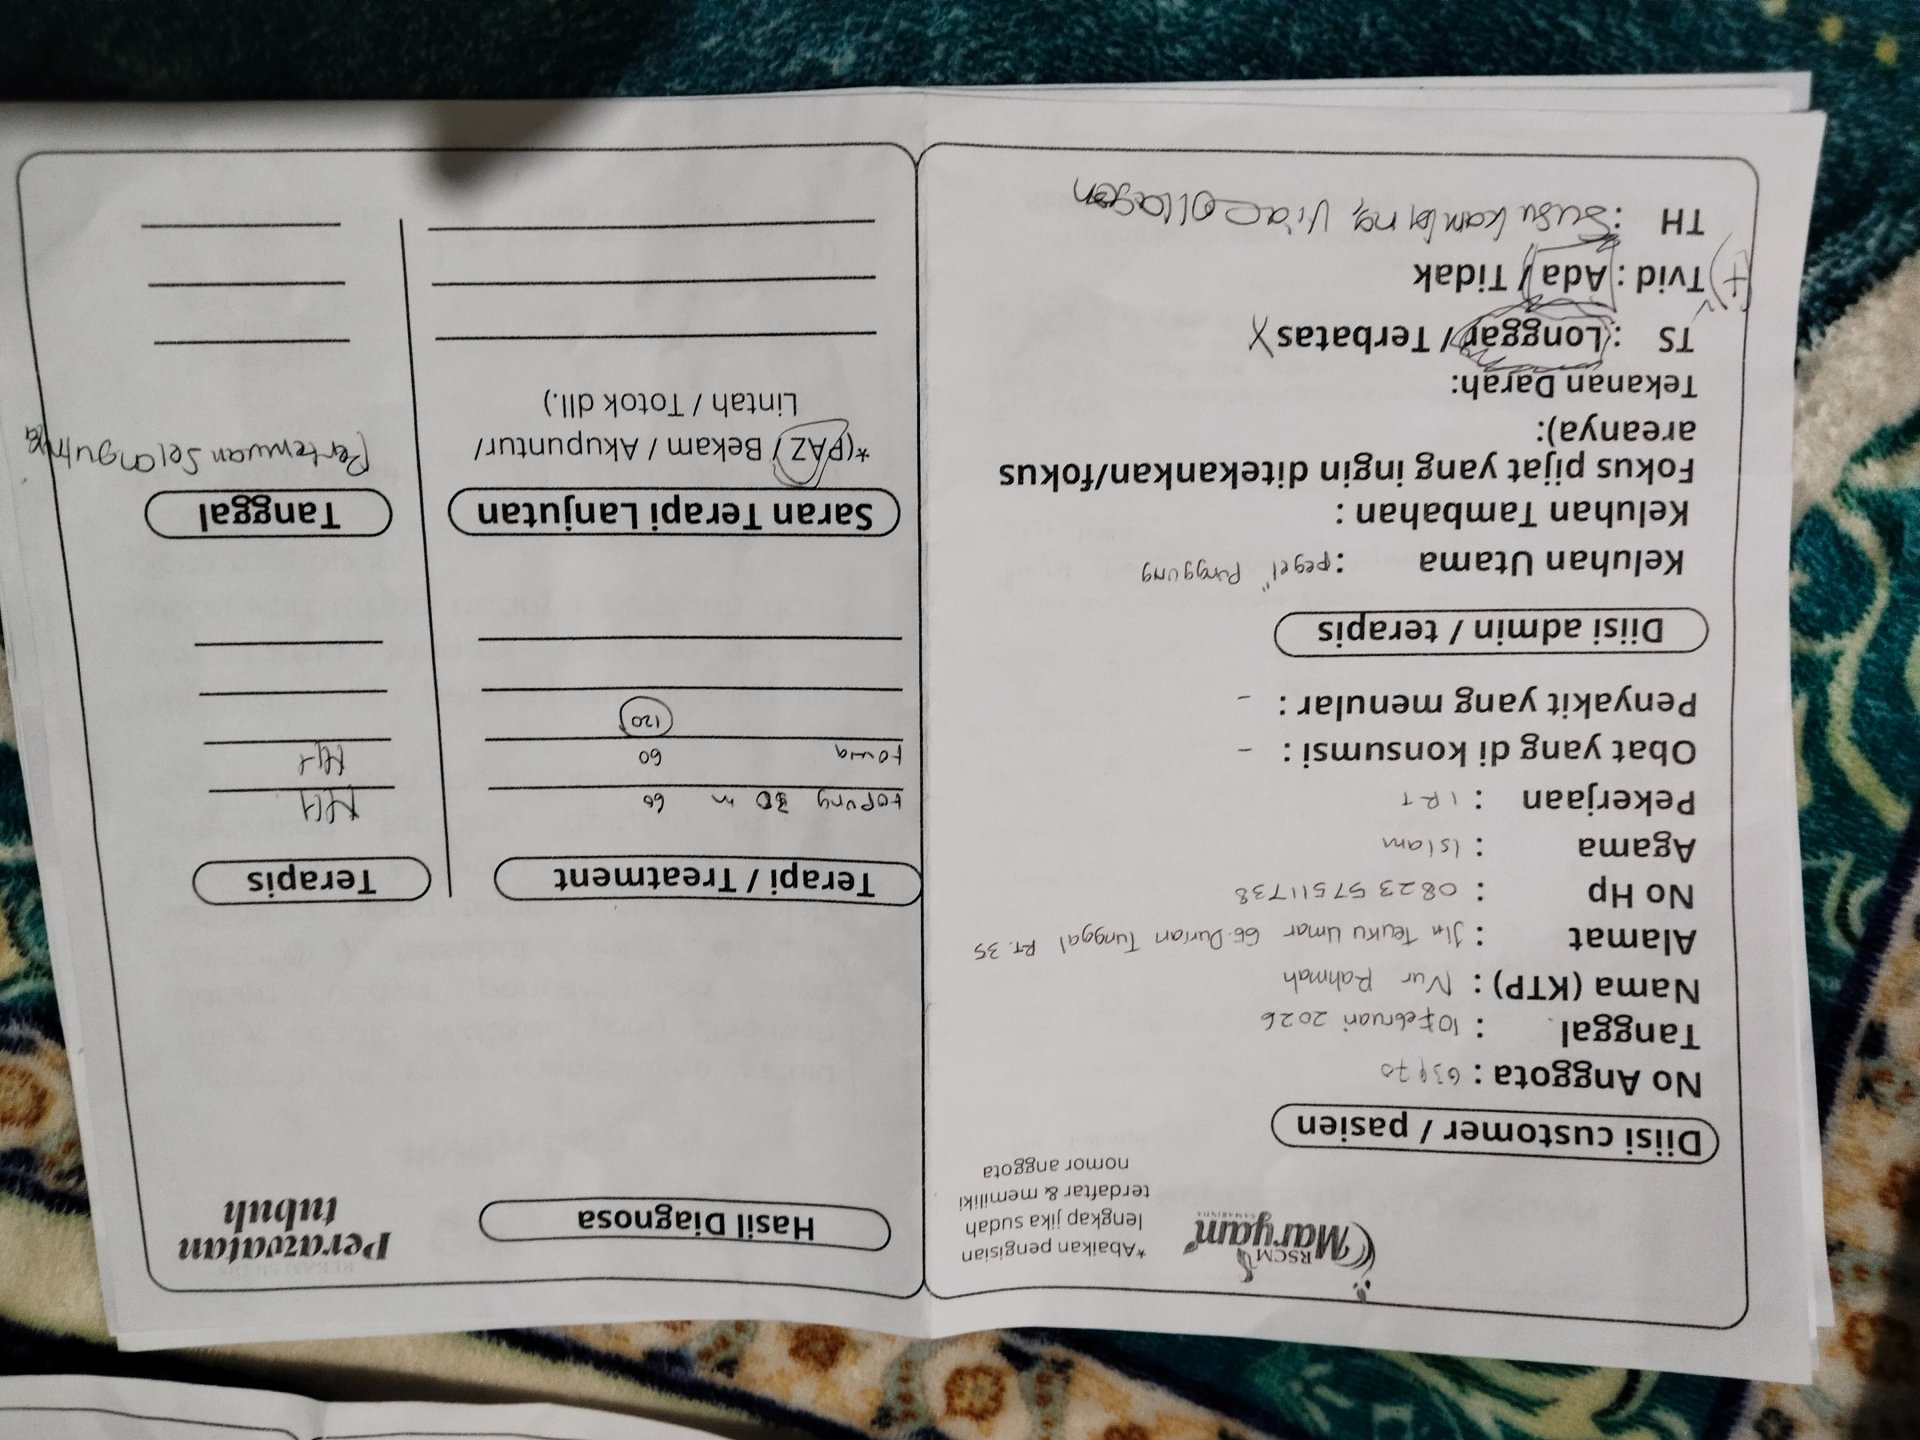 RSCM
Maryam
SAMARINDA
*Abaikan pengisian
lengkap jika sudah
terdaftar & memiliki
nomor anggota
Diisi customer / pasien
No Anggota :
Tanggal : 10 Februari 2026
Nama (KTP) : Nur Rahmah
Alamat : Jln Teuku Umar GG. Durian Tunggal RT. 35
No Hp : 0823 57511738
Agama : Islam
Pekerjaan : IRT
Obat yang di konsumsi : -
Penyakit yang menular : -
Diisi admin / terapis
Keluhan Utama : pegel" Punggung
Keluhan Tambahan :
Fokus pijat yang ingin ditekankan/fokus
areanya):
Tekanan Darah:
TS : Longgar / Terbatas X
Tvid : Ada / Tidak (+)
TH : Susu kambing, Viacollagen
REKAM MEDIS
Perawatan
tubuh
Hasil Diagnosa
Terapi / Treatment
Terapis
60
60
120
Saran Terapi Lanjutan
Tanggal
*(PAZ / Bekam / Akupuntur/
Lintah / Totok dll.)
Pertemuan Selanjutnya